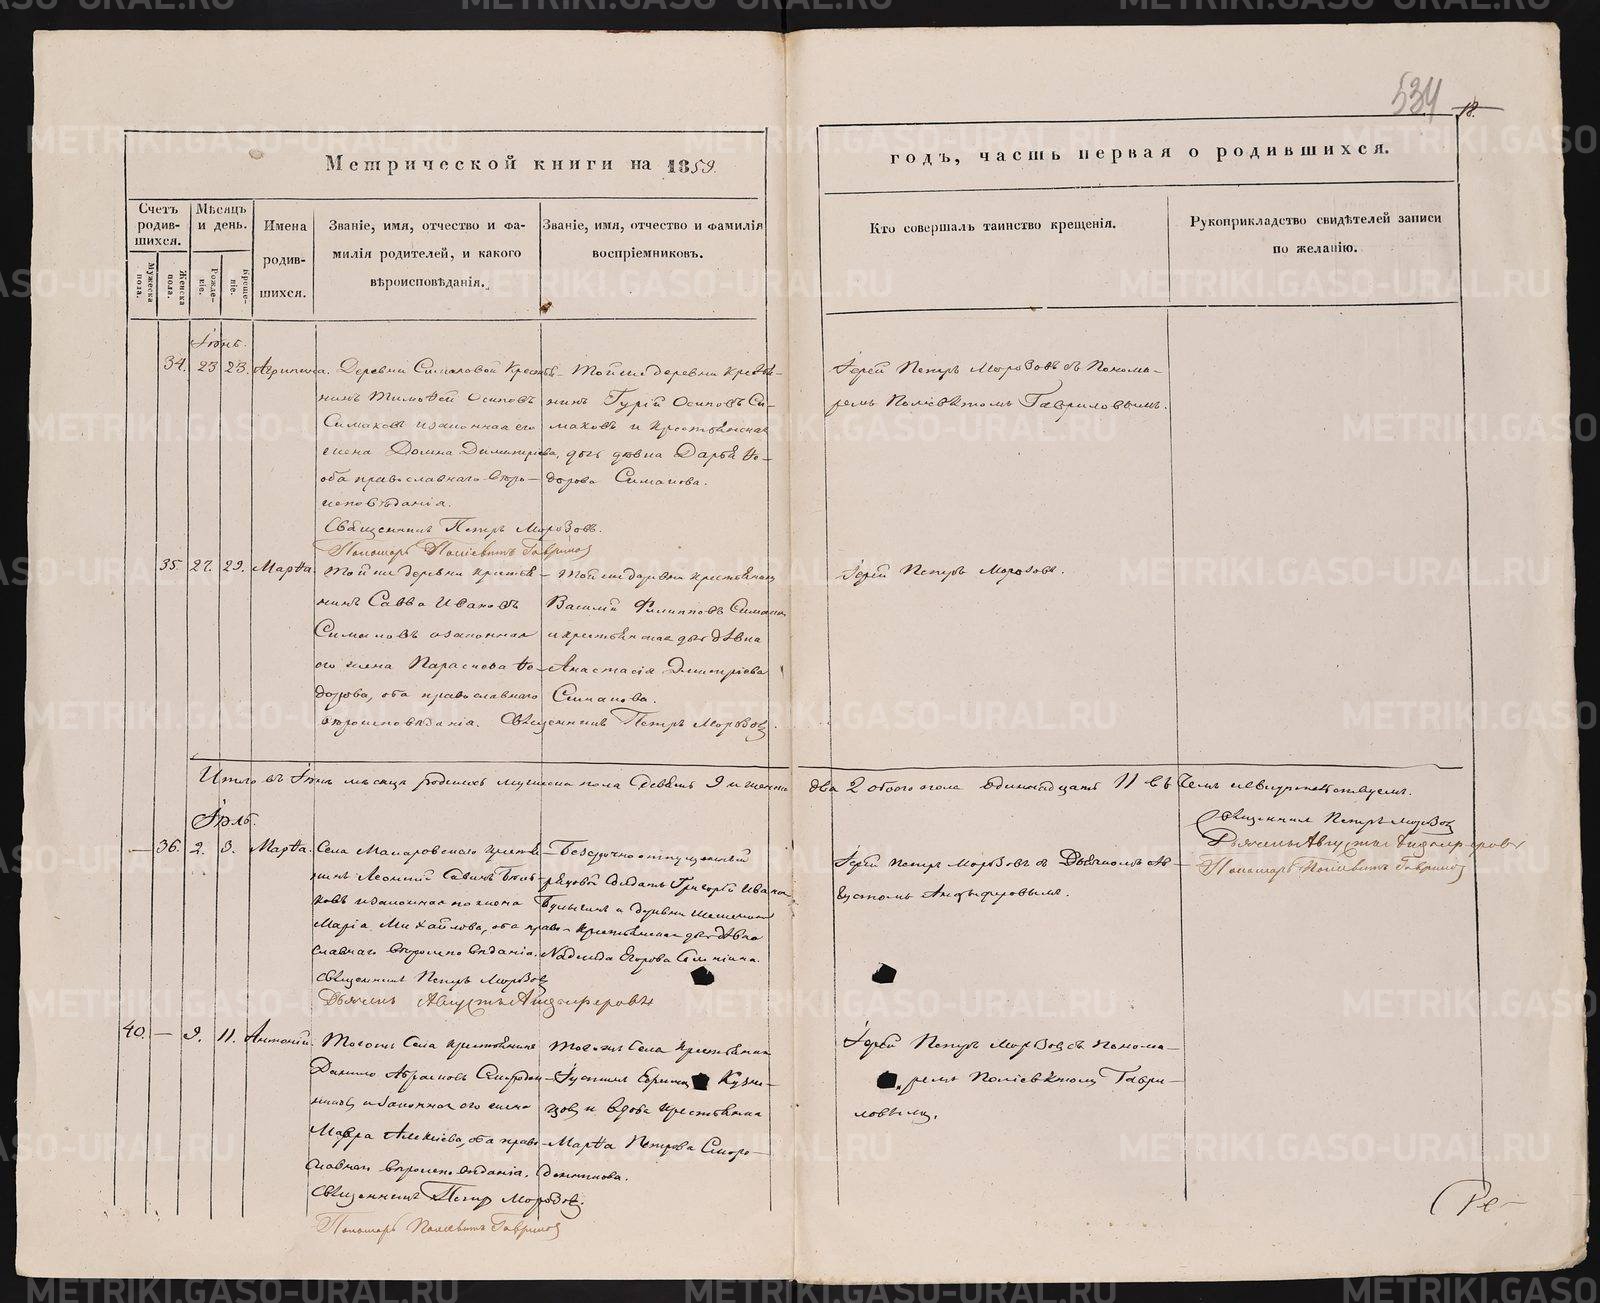 534
18.
Метрической книги на 1859.
годъ, часть первая о родившихся.
Счетъ родив-шихся.
Мѣсяцъ и день.
Имена родив-шихся.
Званіе, имя, отчество и фа-
милія родителей, и какого
вѣроисповѣданія.
Званіе, имя, отчество и фамилія
воспріемниковъ.
Кто совершалъ таинство крещенія.
Рукоприкладство свидѣтелей записи
по желанію.
Мужеска пола.
Женска пола.
Рожде-ніе.
Креще-ніе.
Іюнь.
34. 23 23. Агрипина.
Деревни Симаковой Кресть-
нинъ Тимоѳей Осиповъ
Симаковъ и законная его
жена Домна Димитріева,
оба православнаго вѣро-
исповѣданія.
Священникъ Петръ Морозовъ.
Пономарь Поліевктъ Гавриловъ
Той же деревни кресть-
нинъ Гурій Осиповъ Си-
маковъ и крестьянская
дочь дѣвка Дарья Ѳе-
дорова Симакова.
Іерей Петръ Морозовъ съ Понома-
ремъ Поліевктомъ Гавриловымъ.
35. 27. 29. Марѳа.
Той же деревни крестья-
нинъ Савва Ивановъ
Симаковъ и законная
его жена Параскова Ѳе-
дорова, оба православнаго
вѣроисповѣданія. Священникъ Петръ Морозовъ.
Той же деревни крестьянинъ
Василій Филипповъ Симаковъ
и крестьянская дочь дѣвка
Анастасія Димитріева
Симакова.
Іерей Петръ Морозовъ.
Итого въ Іюнѣ мѣсяцѣ родилось мужеска пола девять 9 и женска два 2 обоего пола одиннадцать 11 въ чемъ и свидѣтельствуемъ.
Священникъ Петръ Морозовъ
Дьяконъ Августъ Анциферовъ
Пономарь Поліевктъ Гавриловъ
Іюль.
— 36. 2. 3. Марѳа.
Села Макаровскаго крестья-
нинъ Леонтій Савинъ
и законная его жена
Марія Михайлова, оба право-
славнаго вѣроисповѣданія.
Священникъ Петръ Морозовъ
Дьяконъ Августъ Анциферовъ
Безсрочноотпускной
рядовой Солдатъ Григорій Ивановъ
и деревни
крестьянская дочь дѣвка
Надежда Егорова
Іерей Петръ Морозовъ съ Дьякономъ Ав-
густомъ Анциферовымъ.
40. — 9. 11. Антоній.
Тогожъ Села крестьянинъ
Данило Абрамовъ Смород-
и законная его жена
Мавра Алексіева, оба право-
славнаго вѣроисповѣданія.
Священникъ Петръ Морозовъ.
Пономарь Поліевктъ Гавриловъ
Тогожъ Села крестьянинъ
Кузне-
цовъ и вдова крестьянка
Марѳа Петрова Сморо-
Іерей Петръ Морозовъ съ понома-
ремъ Поліевктомъ Гаври-
ловымъ.
Ре-
METRIKI.GASO-URAL.RU